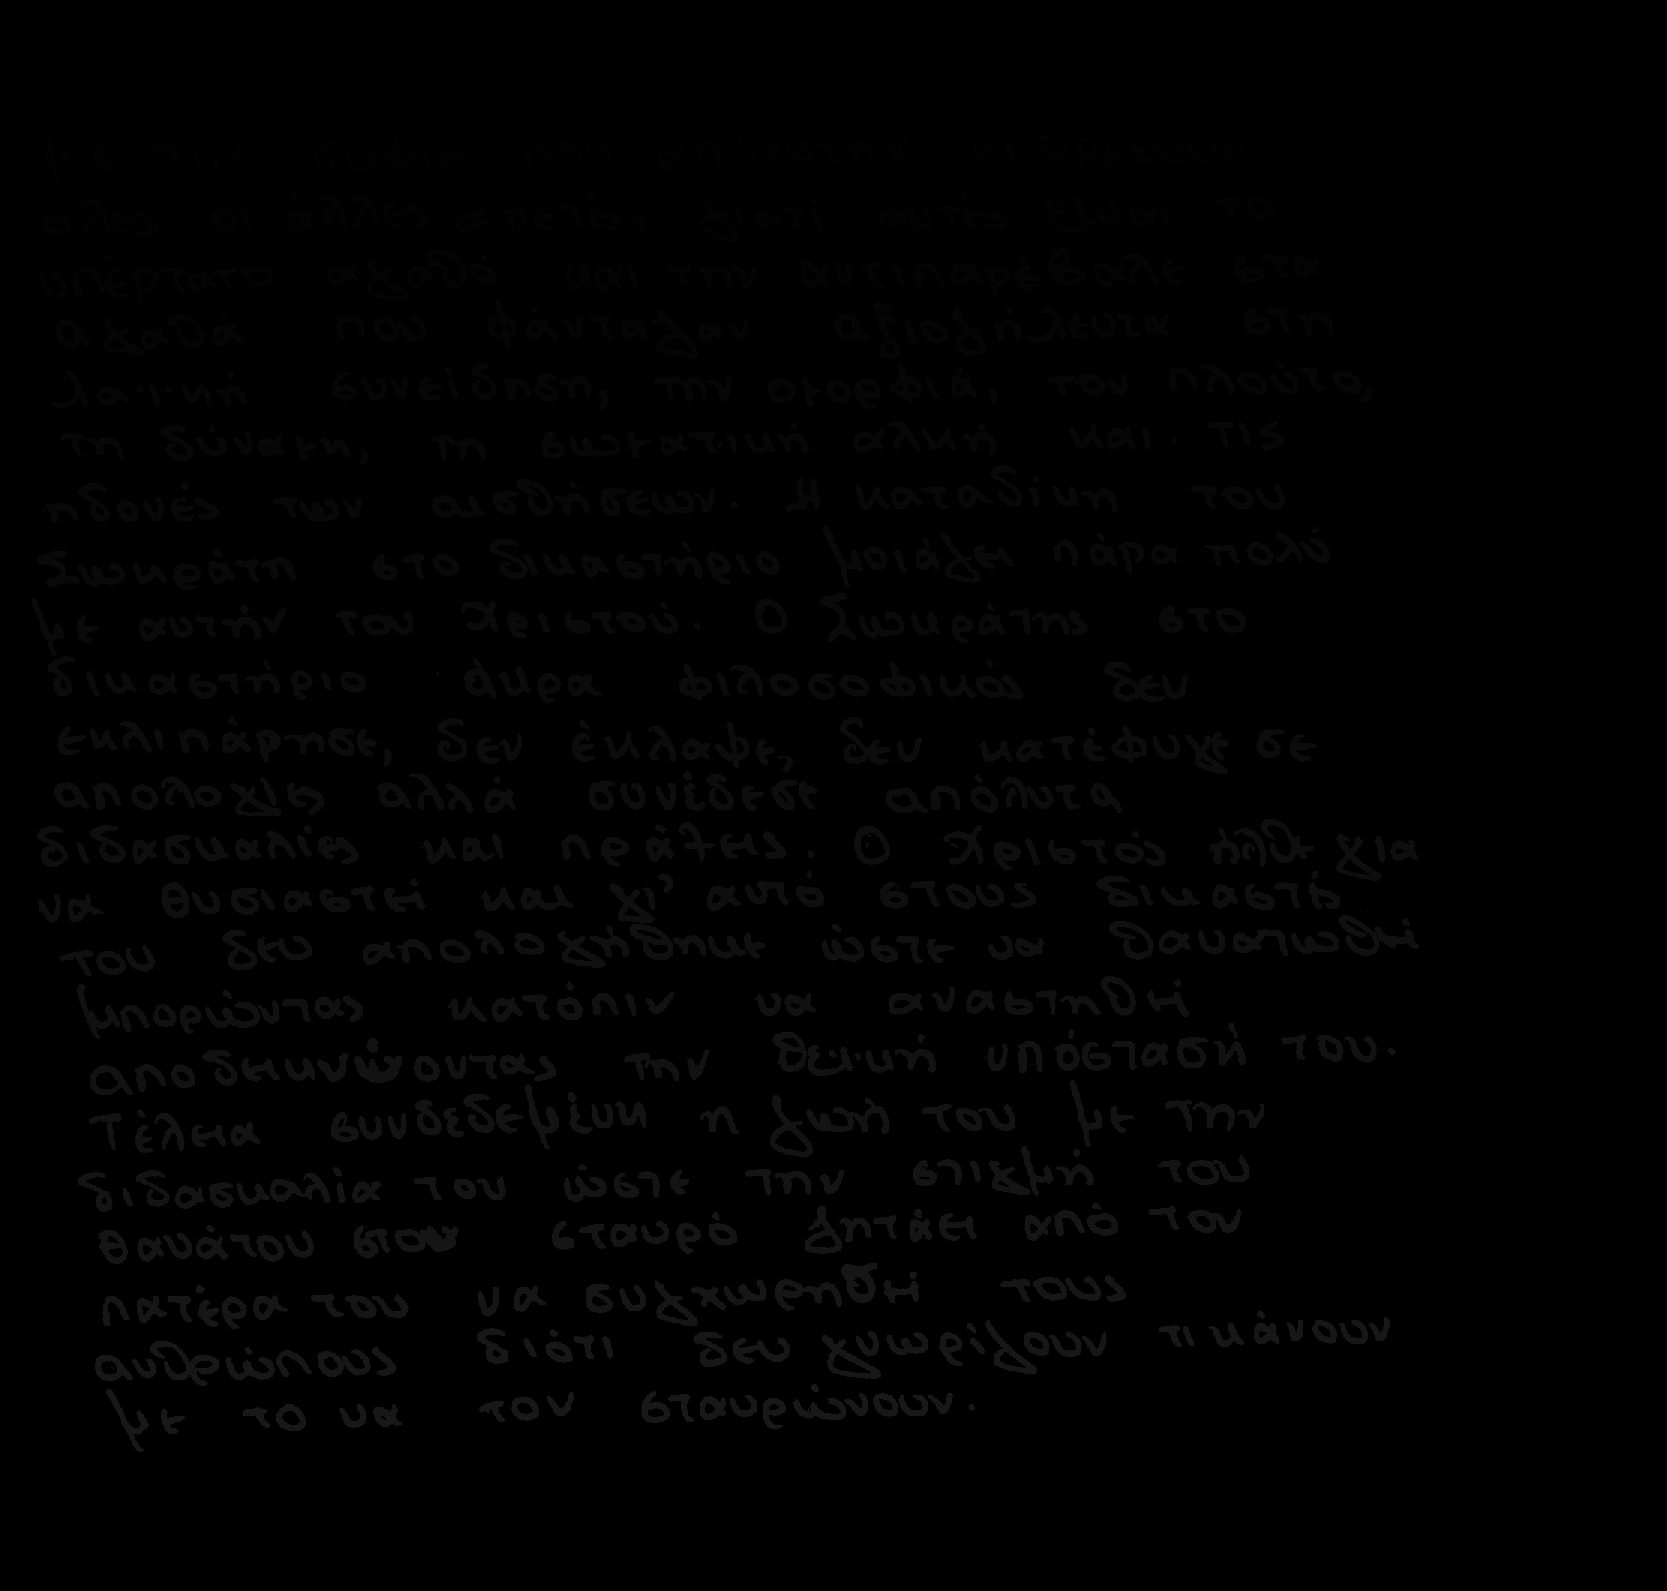 Ο Σωκράτης
με την σοφία που απ'αυτήν απορρέουν
όλες οι άλλες αρετές, γιατί αυτές είναι το
υπέρτατο αγαθό και την αντιπαρέβαλε στα
αγαθά που φάνταζαν αξιοζήλευτα στη
λα·ι·κή συνείδηση, την ομορφιά, τον πλούτο,
τη δύναμη, τη σωματική αλκή και τις
ηδονές των αισθήσεων. Η καταδίκη του
Σωκράτη στο δικαστήριο μοιάζει πάρα πολύ
με αυτήν του Χριστού. Ο Σωκράτης στο
δικαστήριο άκρα φιλοσοφικός δεν
εκλιπάρησε, δεν έκλαψε, δεν κατέφυγε σε
απολογίες αλλά συνέδεσε απόλυτα
διδασκαλίες και πράξεις. Ο Χριστός ήλθε για
να θυσιαστεί και γι' αυτό στους δικαστές
του δεν απολογήθηκε ώστε να θανατωθεί
μπορώντας κατόπιν να αναστηθεί
την θει·κή υπόστασή του.
Τέλεια συνδεδεμένη η ζωή του με την
διδασκαλία του ώστε την στιγμή του
θανάτου στον σταυρό ζητάει από τον
πατέρα του να συγχωρηθεί τους
ανθρώπους διότι δεν γνωρίζουν τι κάνουν
με το να τον σταυρώνουν.